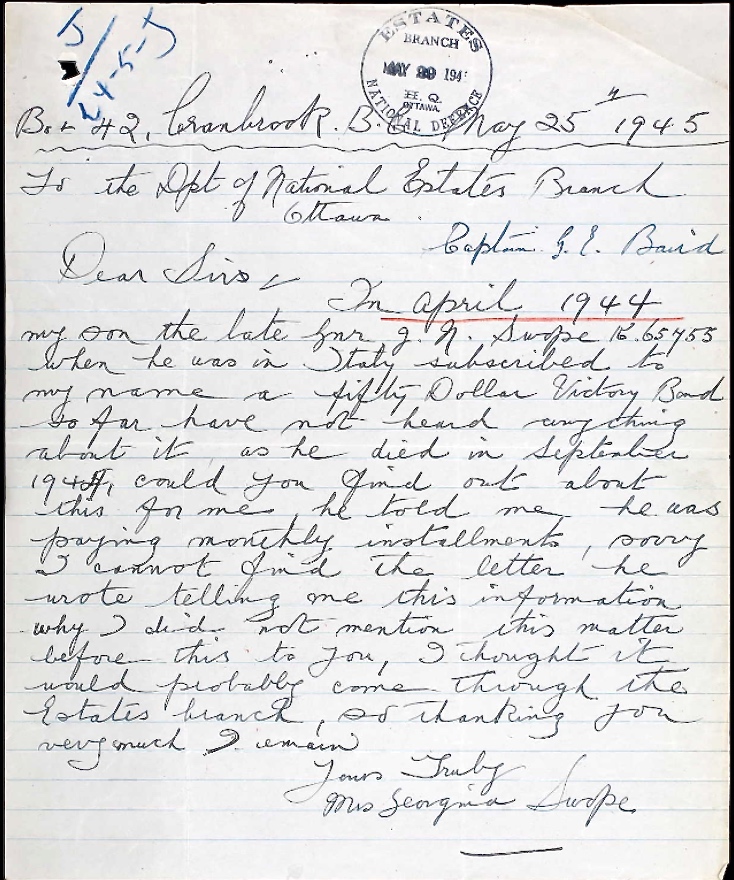 J
24-5-J
ESTATES
BRANCH
MAY 30 194
H.Q.
OTTAWA.
NATIONAL DEFENCE
Box 42, Cranbrook. B.C. May 25th 1945
To the Dpt of National Estates Branch
Ottawa
Captain G. E. Baird
Dear Sirs,
In April 1944
my son the late Gnr J. N. Swope K.65755
when he was in Italy subscribed to
my name a fifty Dollar Victory Bond
so far have not heard anything
about it, as he died in September
1944, could you find out about
this for me, he told me he was
paying monthly installments, sorry
I cannot find the letter he
wrote telling me this information
why I did not mention this matter
before this to you, I thought it
would probably come through the
Estates branch, so thanking you
very much I remain
Yours Truly
Mrs Georgina Swope